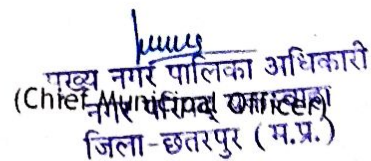 मुख्य नगर पालिका अधिकारी
(Chief Municipal Officer)
नगर परिषद्
जिला-छतरपुर (म.प्र.)